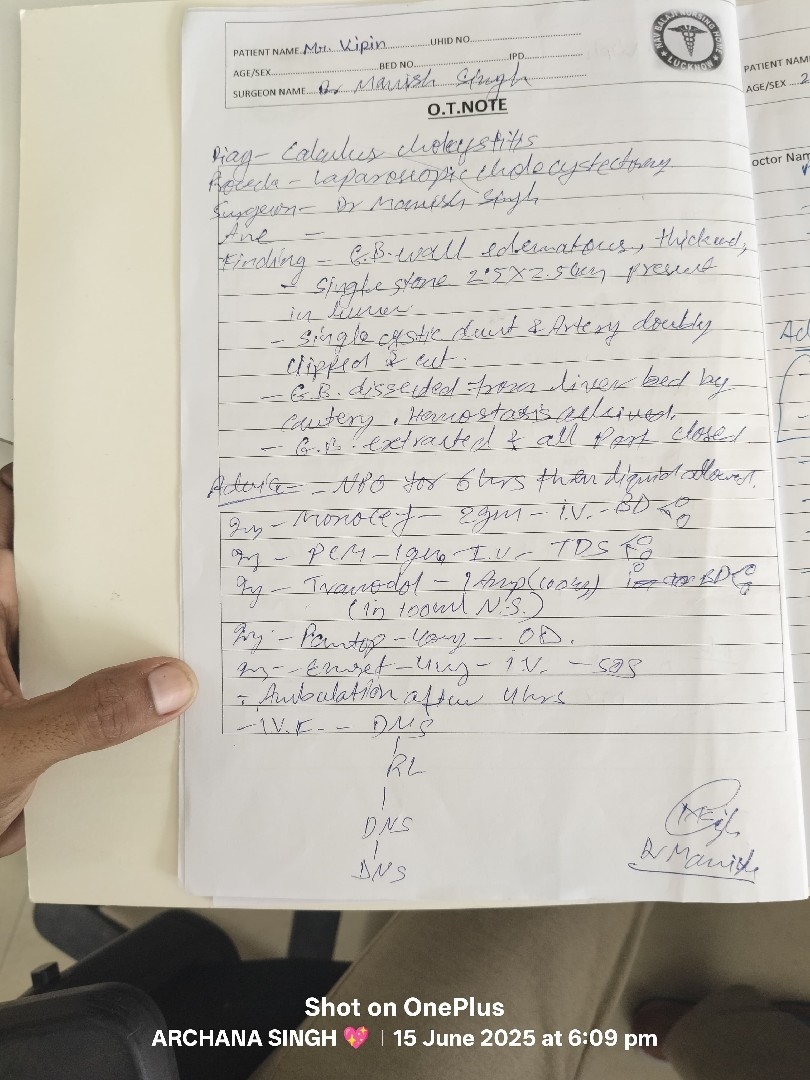 PATIENT NAME Mr. Vipin UHID NO.
AGE/SEX BED NO. IPD
SURGEON NAME Dr Manish Singh
NAV BALAJI NURSING HOME
★ LUCKNOW ★
O.T.NOTE
Diag - Calculus cholecystitis
Proceda - Laparoscopic cholecystectomy
Surgeon - Dr Manish Singh
Ane -
Finding - G.B. wall edematous, thickend,
- Single stone 2.5 X 2.5 cm present
in lumen
- Single cystic duct & Artery doubly
clipped & cut.
- G.B. dissected from liver bed by
cautery. Hemostasis achived.
- G.B. extracted & all Port closed
Advice - NPO for 6 hrs then liquid allowed.
Inj - Monocef - 2gm - I.V. - BD
Inj - PCM - 1gm - I.V. - TDS
Inj - Tramodol - 1 Amp (100mg) BD
(in 100ml N.S.)
Inj - Pantop - 40mg - OD.
Inj - Emset - 4mg - I.V. - SOS
- Ambulation after 4 hrs
- I.V.F. - DNS
RL
DNS
DNS
Dr Manish
PATIENT NAM
AGE/SEX 2
octor Nam
Ad
Shot on OnePlus
ARCHANA SINGH 💖 | 15 June 2025 at 6:09 pm